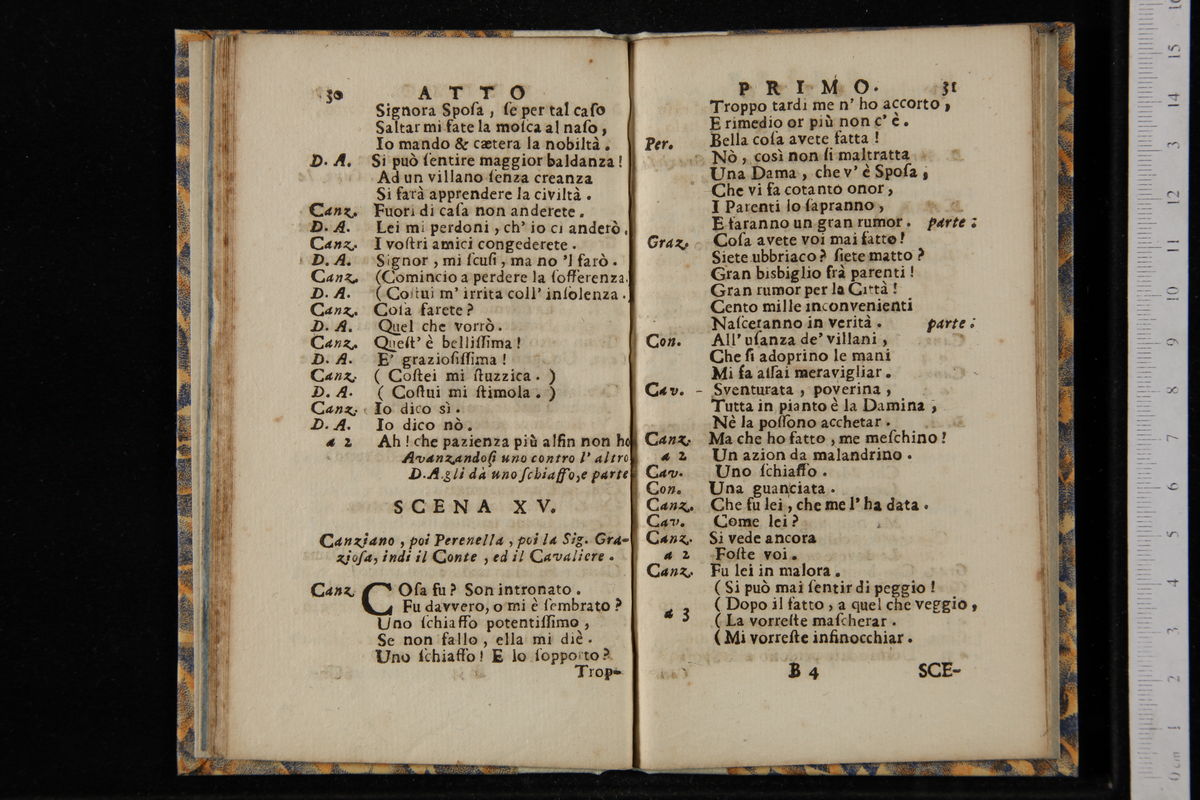 30 ATTO
Signora Spoſa, ſe per tal caſo
Saltar mi fate la moſca al naſo,
Io mando & cætera la nobiltà.
D. A. Si può ſentire maggior baldanza!
Ad un villano ſenza creanza
Si farà apprendere la civiltà.
Canz. Fuori di caſa non anderete.
D. A. Lei mi perdoni, ch' io ci anderò.
Canz. I voſtri amici congederete.
D. A. Signor, mi ſcuſi, ma no 'l farò.
Canz. (Comincio a perdere la ſofferenza.
D. A. (Coſtui m' irrita coll' inſolenza.
Canz. Coſa farete?
D. A. Quel che vorrò.
Canz. Queſt' è belliſſima!
D. A. E' grazioſiſſima!
Canz. (Coſtei mi ſtuzzica.)
D. A. (Coſtui mi ſtimola.)
Canz. Io dico sì.
D. A. Io dico nò.
a 2 Ah! che pazienza più alfin non ho
Avanzandoſi uno contro l' altro
D. A. gli dà uno ſchiaffo, e parte
SCENA XV.
Canziano, poi Perenella, poi la Sig. Gra-
zioſa, indi il Conte, ed il Cavaliere.
Canz. COſa fu? Son intronato.
Fu davvero, o mi è ſembrato?
Uno ſchiaffo potentiſſimo,
Se non fallo, ella mi diè.
Uno ſchiaffo! E lo ſopporto?
Trop-
PRIMO. 31
Troppo tardi me n' ho accorto,
E rimedio or più non c' è.
Per. Bella coſa avete fatta!
Nò, così non ſi maltratta
Una Dama, che v' è Spoſa;
Che vi fa cotanto onor,
I Parenti lo ſapranno,
E faranno un gran rumor. parte.
Graz. Coſa avete voi mai fatto!
Siete ubbriaco? ſiete matto?
Gran bisbiglio frà parenti!
Gran rumor per la Città!
Cento mille inconvenienti
Naſceranno in verità. parte.
Con. All' uſanza de' villani,
Che ſi adoprino le mani
Mi fa aſſai meravigliar.
Cav. - Sventurata, poverina,
Tutta in pianto è la Damina;
Nè la poſſono acchetar.
Canz. Ma che ho fatto, me meſchino!
a 2 Un azion da malandrino.
Cav. Uno ſchiaffo.
Con. Una guanciata.
Canz. Che fu lei, che me l' ha data.
Cav. Come lei?
Canz. Si vede ancora
a 2 Foſte voi.
Canz. Fu lei in malora.
(Si può mai ſentir di peggio!
a 3 (Dopo il fatto, a quel che veggio,
(La vorreſte maſcherar.
(Mi vorreſte infinocchiar.
B 4 SCE-
15
14
13
12
11
10
9
8
7
6
5
4
3
2
1
0 cm